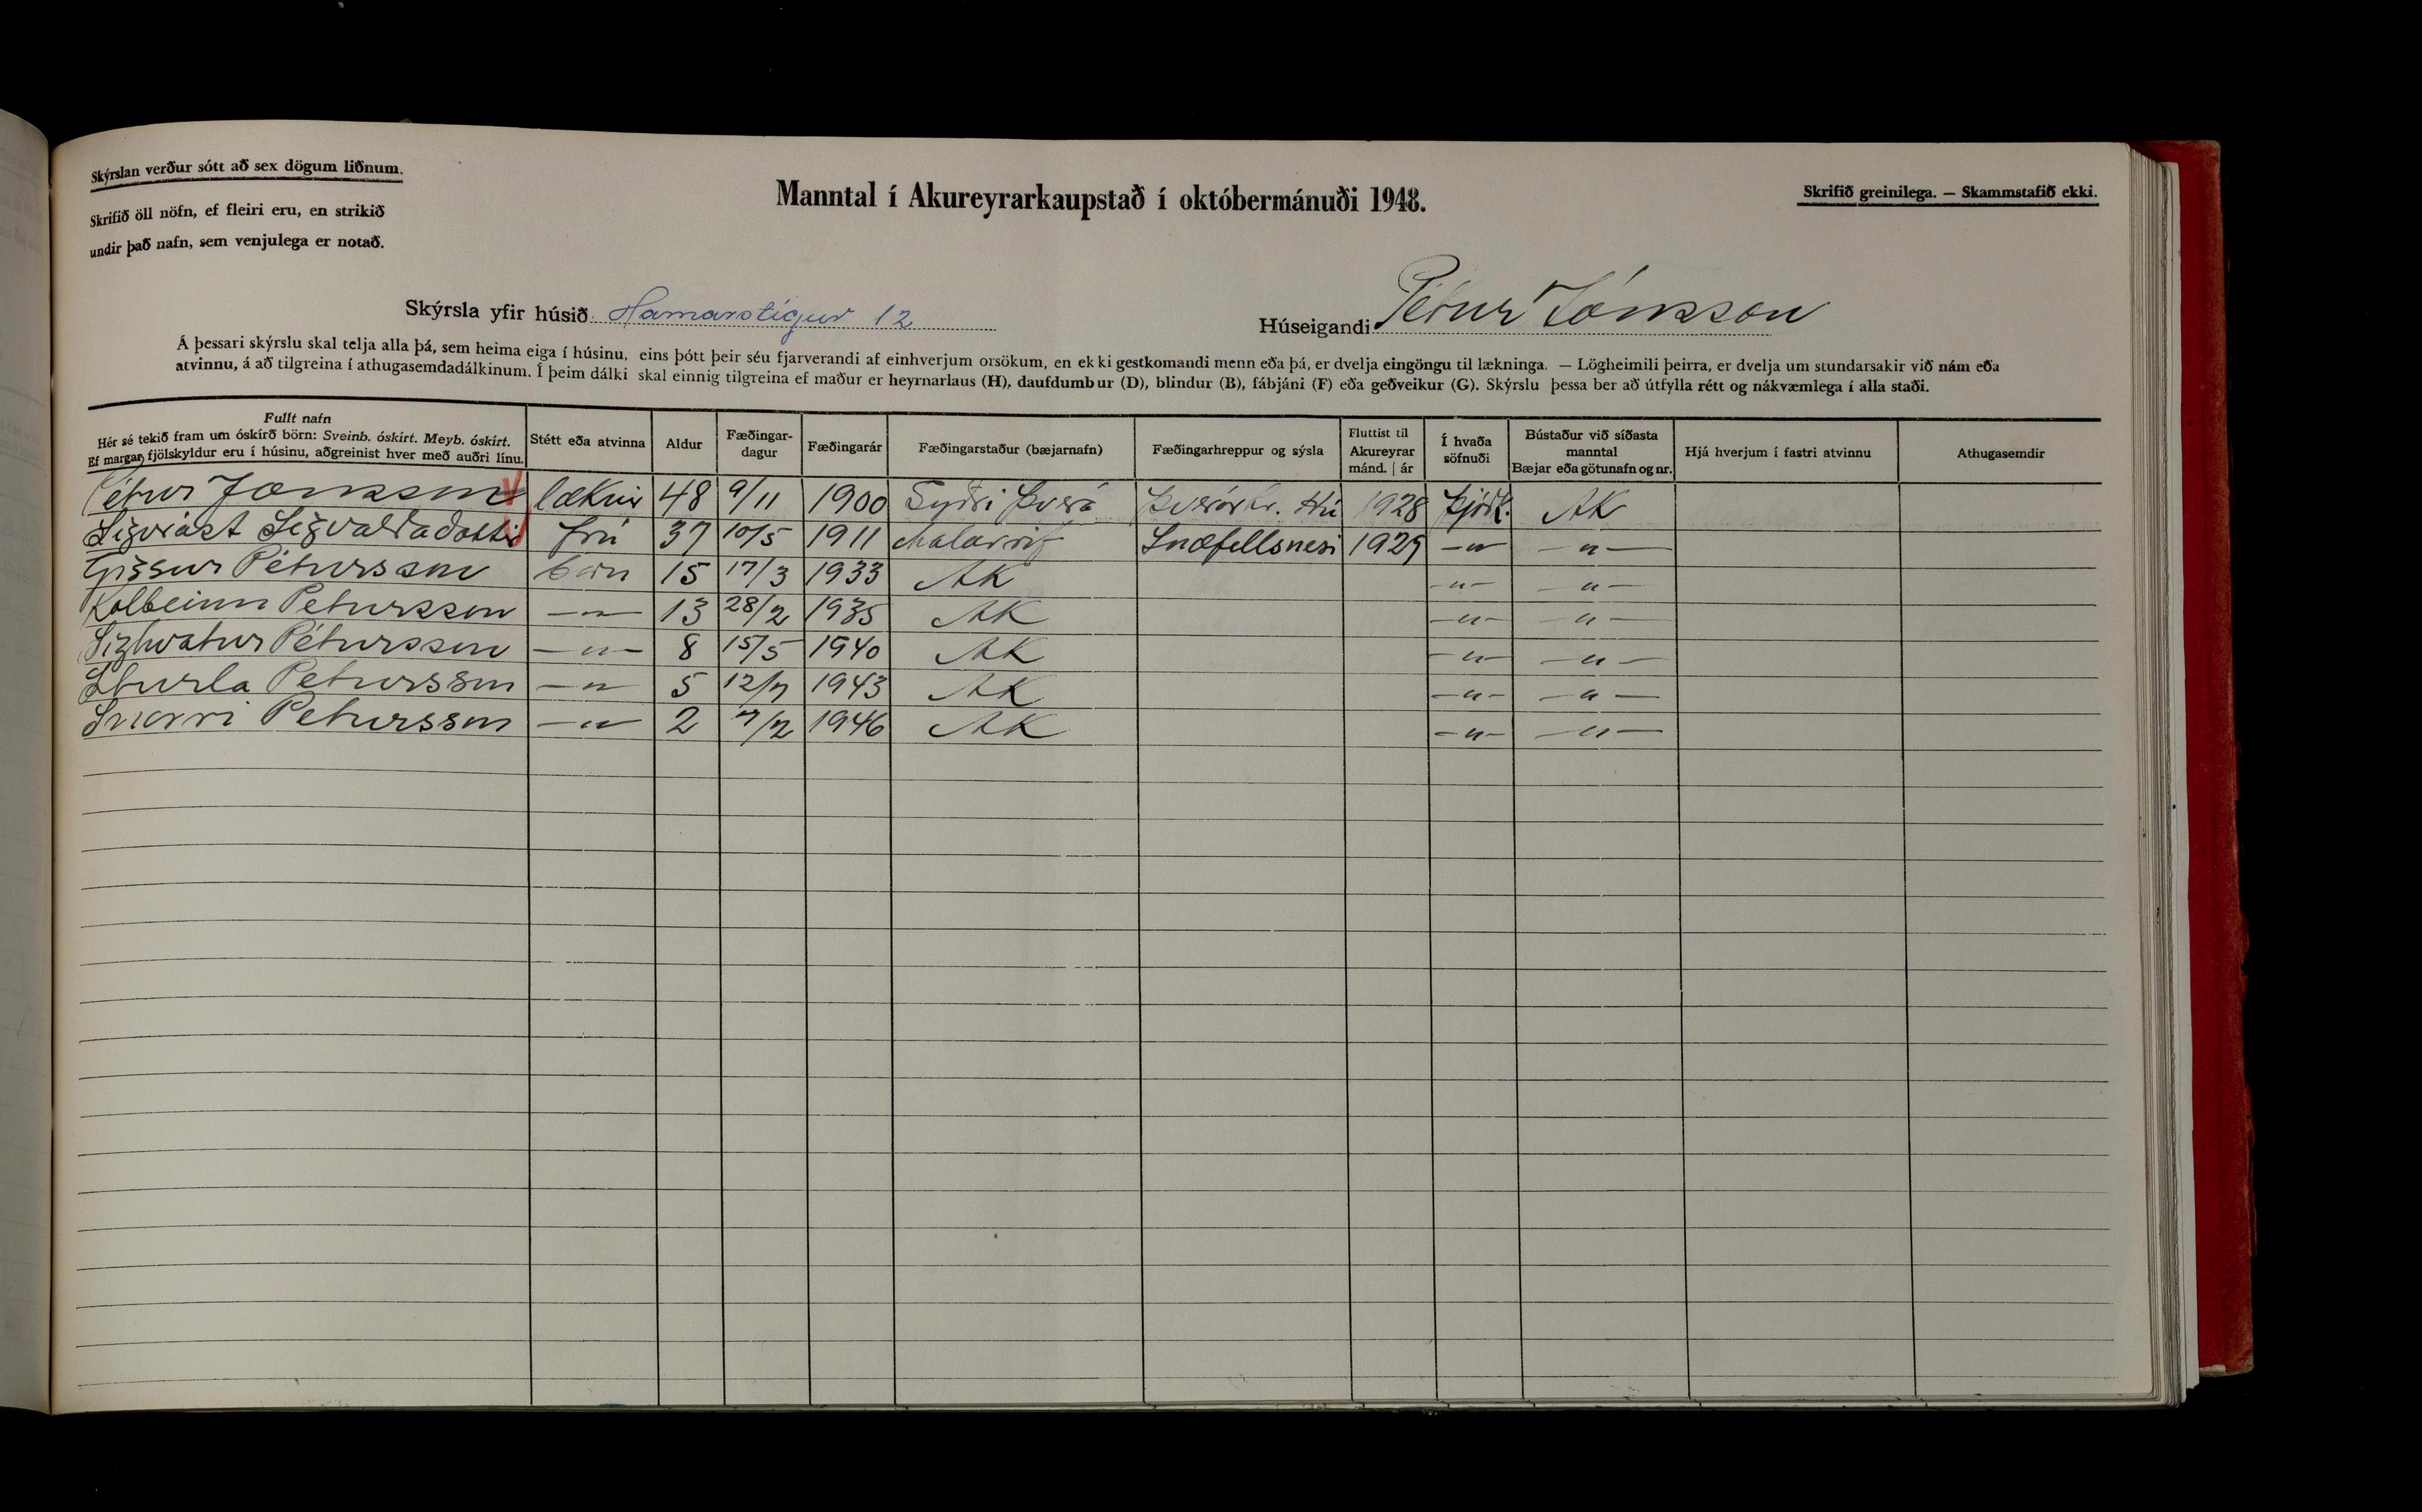 Skýrslan verður sótt að sex dögum liðnum.
Skrifið öll nöfn, ef fleiri eru, en strikið
undir það nafn, sem venjulega er notað.
Manntal í Akureyrarkaupstað í októbermánuði 1948.
Skrifið greinilega. — Skammstafið ekki.
Skýrsla yfir húsið Hamarstígur 12
Húseigandi Pétur Jónsson
Á þessari skýrslu skal telja alla þá, sem heima eiga í húsinu, eins þótt þeir séu fjarverandi af einhverjum orsökum, en ekki gestkomandi menn eða þá, er dvelja eingöngu til lækninga. — Lögheimili þeirra, er dvelja um stundarsakir við nám eða
atvinnu, á að tilgreina í athugasemdadálkinum. Í þeim dálki skal einnig tilgreina ef maður er heyrnarlaus (H), daufdumbur (D), blindur (B), fábjáni (F) eða geðveikur (G). Skýrslu þessa ber að útfylla rétt og nákvæmlega í alla staði.
Fullt nafn
Hér sé tekið fram um óskírð börn: Sveinb. óskírt. Meyb. óskírt.
Ef margar fjölskyldur eru í húsinu, aðgreinist hver með auðri línu.
Stétt eða atvinna
Aldur
Fæðingar-
dagur
Fæðingarár
Fæðingarstaður (bæjarnafn)
Fæðingarhreppur og sýsla
Fluttist til
Akureyrar
mánd. | ár
Í hvaða
söfnuði
Bústaður við síðasta
manntal
Bæjar eða götunafn og nr.
Hjá hverjum í fastri atvinnu
Athugasemdir
Pétur Jónsson læknir 48 9/11 1900 Syðri Þverá Þverárhr. Hú 1928 Þjóðk. AK
Sigríást Sigvaldadóttir frú 37 10/5 1911 Malarrif Snæfellsnesi 1929 —"— —"—
Gissur Pétursson barn 15 17/3 1933 AK —"— —"—
Kolbeinn Pétursson —"— 13 28/2 1935 AK —"— —"—
Sighvatur Pétursson —"— 8 15/5 1940 AK —"— —"—
Sturla Pétursson —"— 5 12/7 1943 AK —"— —"—
Snorri Pétursson —"— 2 7/2 1946 AK —"— —"—